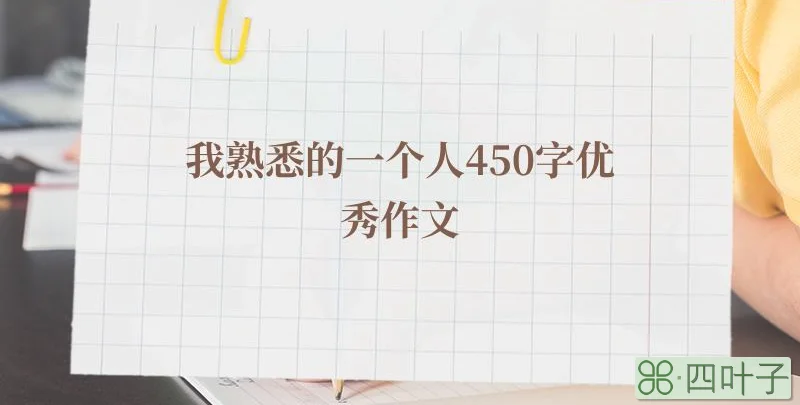 我熟悉的一个人450字优
秀作文
四叶子